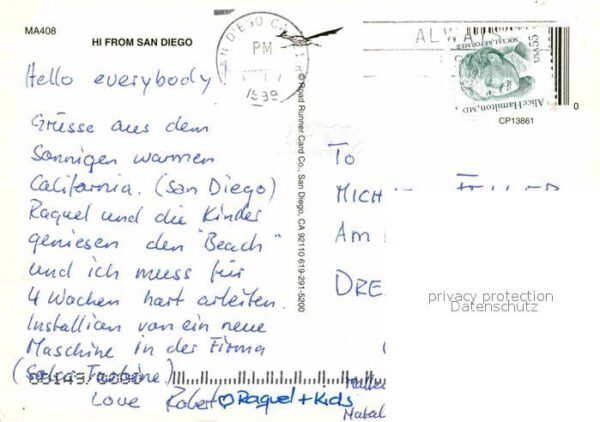 MA408
HI FROM SAN DIEGO
SAN DIEGO CA
PM
1999
ALWA
Alice Hamilton, MD
SOCIAL REFORMER
USA 55
CP13861
0
© Road Runner Card Co., San Diego, CA 92110 619-291-5200
Hello everybody
Grüsse aus dem
Sonnigen warmen
California. (San Diego)
Raquel und die Kinder
geniesen den "Beach"
und ich muss für
4 Wochen hart arbeiten.
Installieren von ein neue
Maschine in der Firma
(Solar Turbine)
Love Robert ♡ Raquel + Kids
To
MICH
AM
DRE
privacy protection
Datenschutz